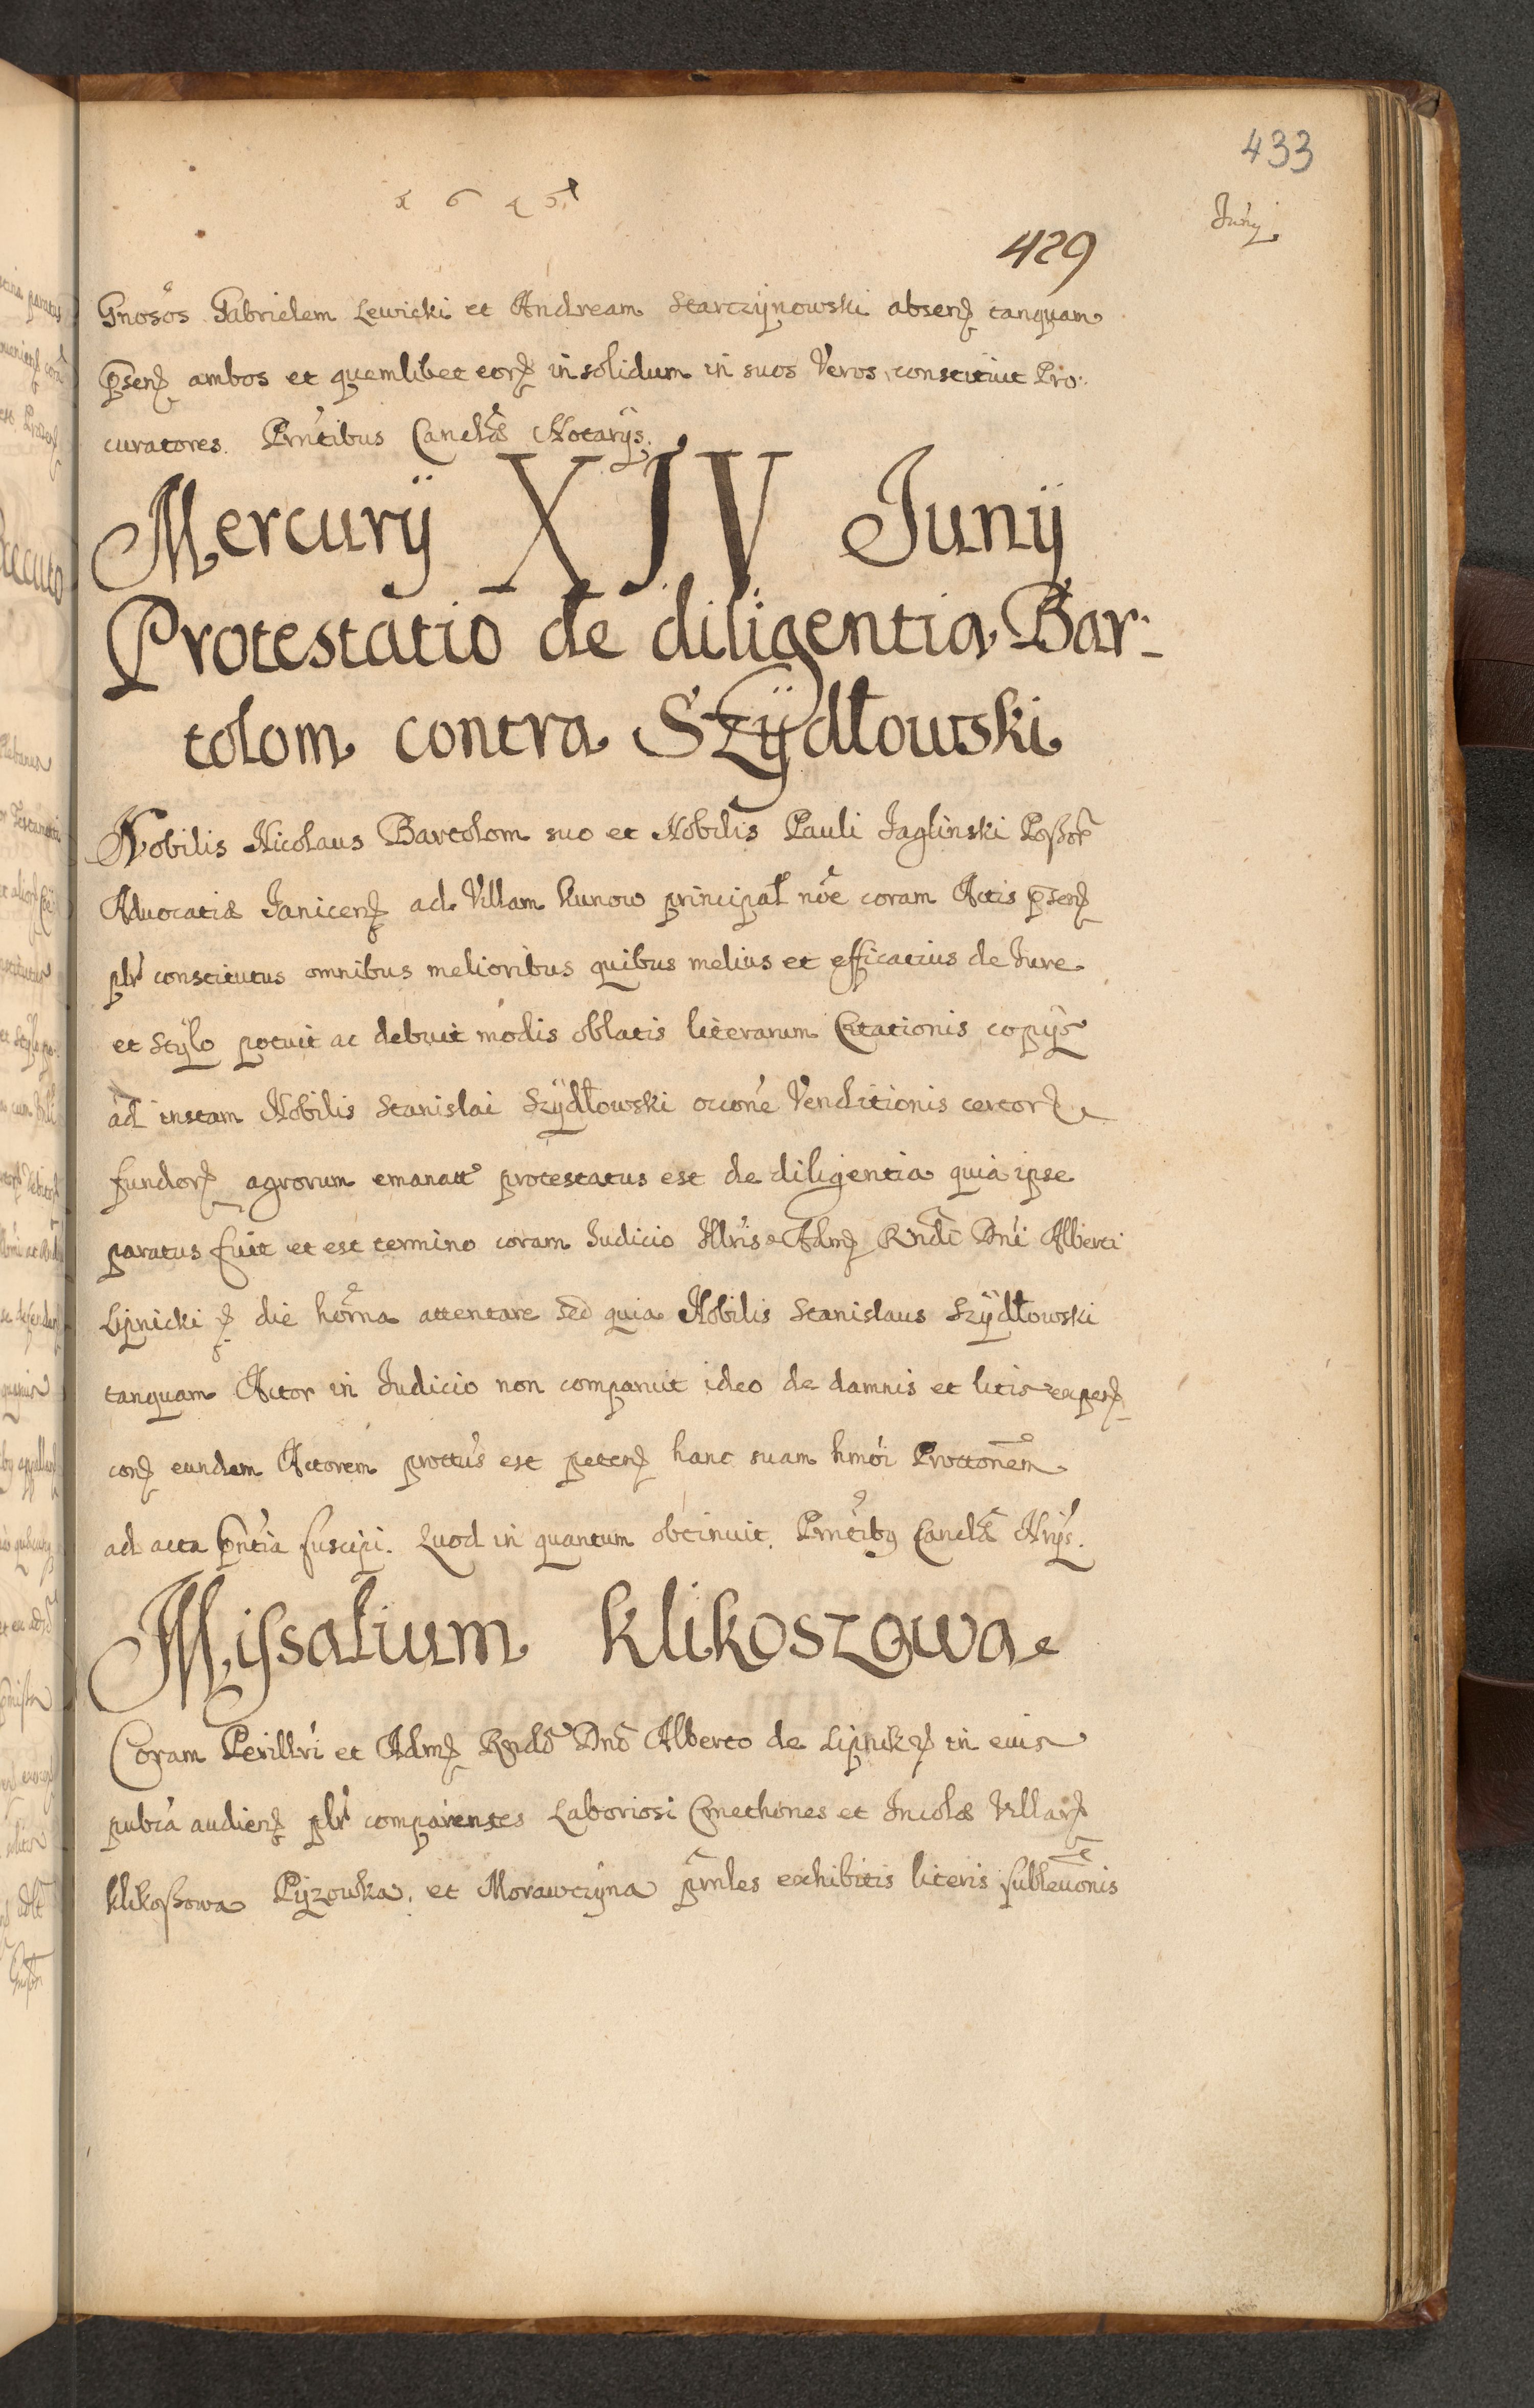 433
1645
Junÿ
429
Gnosos Gabrielem Lewicki et Andream Starczÿnowski absenꝫ tanquam
pn̄senꝫ ambos et quemlibet eorꝫ in solidum in suos Veros constituit Pro:
curatores. Pn̄ntibus Cancllæ Notarÿs.
Mercurÿ XIV Junÿ
Protestatio de diligentia Bar:
tolom contra Szÿdłowski
Nobilis Nicolaus Bartolom suo et Nobilis Pauli Jaglinski Poßor
Advocatiæ Janicenꝫ ad Villam Kunow principal noe coram Actis p̄senꝫ
plr constitutus omnibus melioribus quibus melius et efficatius de Jure
et stÿlo potuit ac debuit modis oblatis literarum Citationis copÿs
ad instam Nobilis Stanislai Szÿdłowski occone Venditionis certorꝫ
fundorꝫ agrorum emanatt protestatus est de diligentia quia ipse
paratus fuit et est termino coram Judicio Illris Admꝫ Rndi Dni Alberti
Lipnicki ꝫ die horna attentare sed quia Nobilis Stanislaus Szÿdłowski
tanquam Actor in Judicio non comparuit ideo de damnis et litis expenꝫ
conꝫ eundem Actorem prottus est petenꝫ hanc suam hmoi Prottonem
ad acta pntia suscipi. Quod in quantum obtinuit. Prntibꝫ Cancllæ Nrÿs.
Missalium Klikoszowa
Coram Perillri et Admꝫ Rndo Dno Alberto de Lipnikꝫ in euis
publca audienꝫ plr comparentes Laboriosi Cmethones et Incolæ Villarꝫ
Klikoßowa Pÿzowka et Morawczÿna prnles exhibitis literis subleuonis